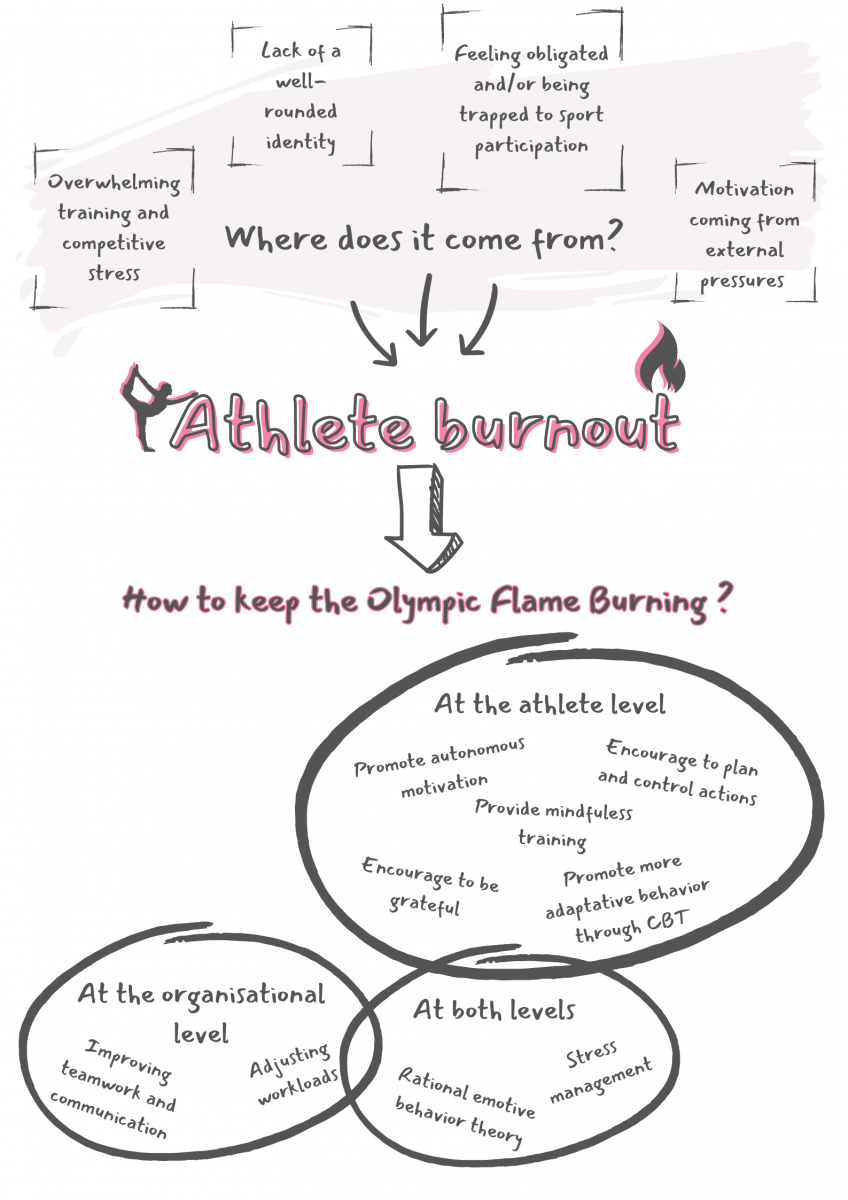 Lack of a
well-
rounded
identity
Feeling obligated
and/or being
trapped to sport
participation
Overwhelming
training and
competitive
stress
Motivation
coming from
external
pressures
Where does it come from?
Athlete burnout
How to keep the Olympic Flame Burning ?
At the athlete level
Promote autonomous
motivation
Encourage to plan
and control actions
Provide mindfuless
training
Encourage to be
grateful
Promote more
adaptative behavior
through CBT
At the organisational
level
Improving
teamwork and
communication
Adjusting
workloads
At both levels
Rational emotive
behavior theory
Stress
management